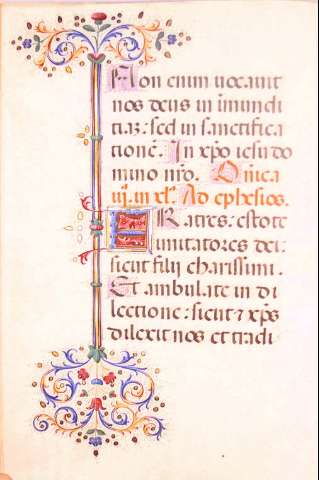 Non enim vocavit
nos deus in inmundi
tiaz: sed in sanctifica
tione. In xpo iesu do
mino nro. Dnica
iij. in xl. Ad ephesios.
FRatres: estote
imitatores dei:
sicut filij charissimi.
Et ambulate in di
lectione: sicut ⁊ xps
dilexit nos et tradi